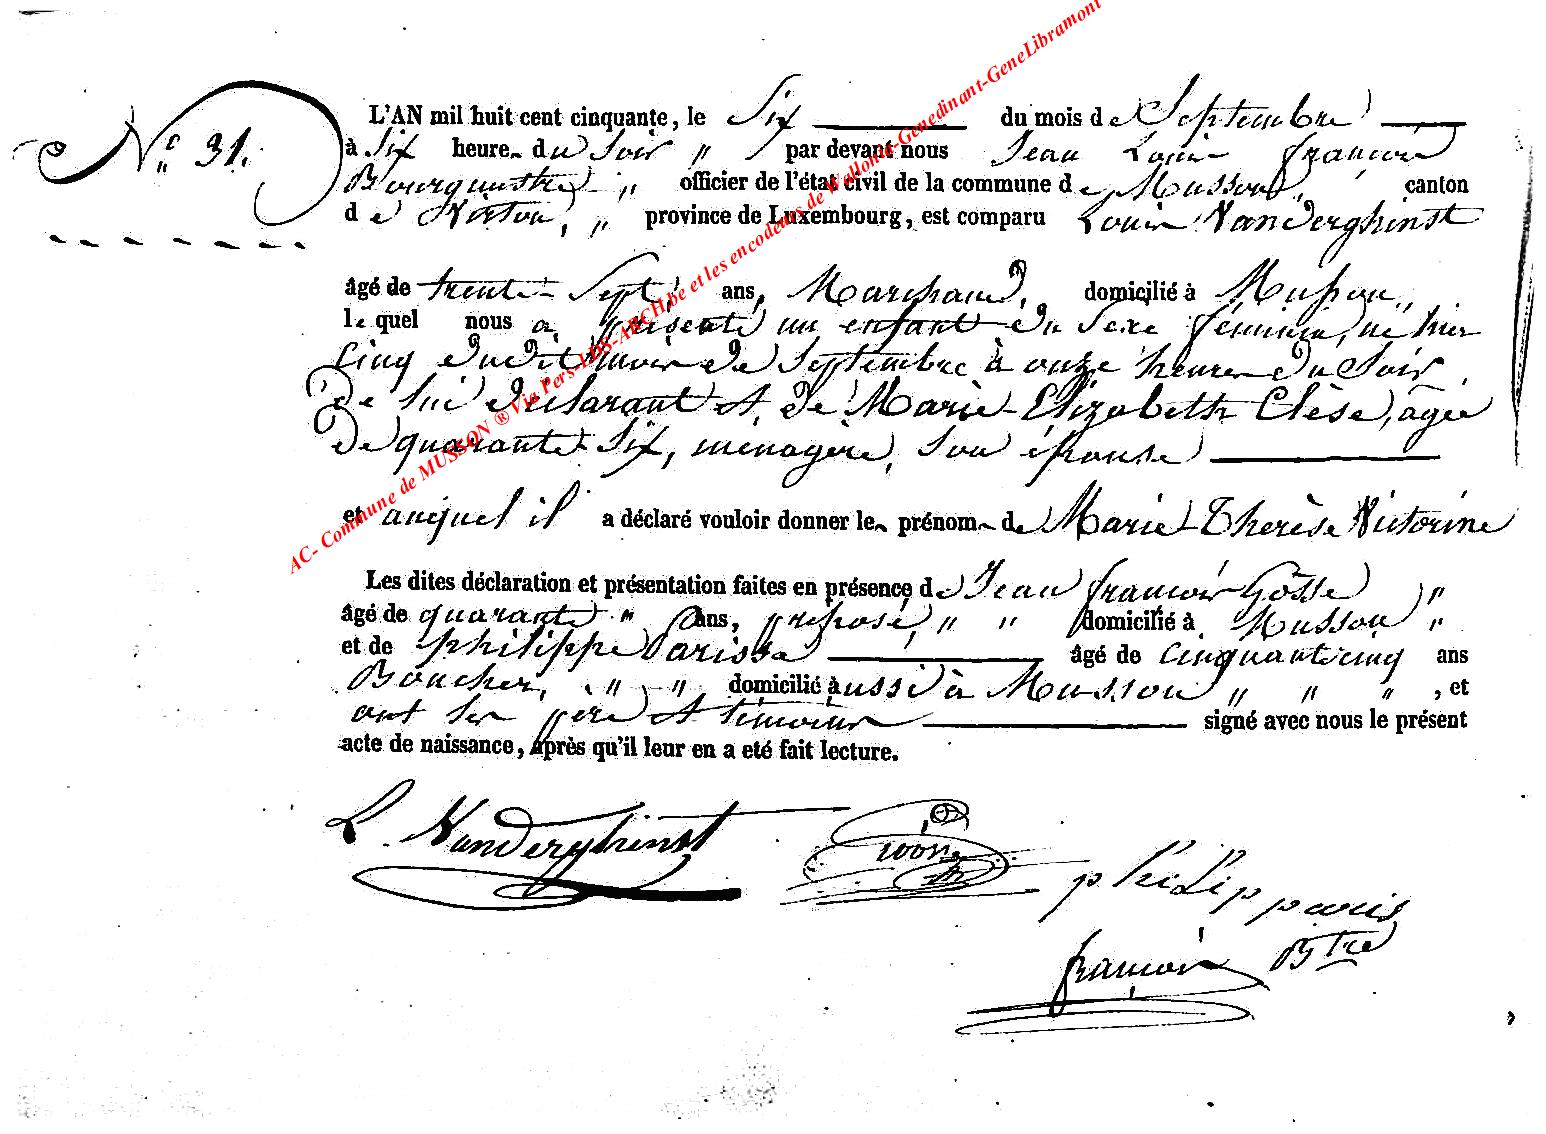 N.° 31.
L'AN mil huit cent cinquante, le Six du mois de Septembre
à Six heure du Soir " par devant nous Jean Louis françois
Bourguestre " officier de l'état civil de la commune de Musson, canton
de Virton, " province de Luxembourg, est comparu Louis Vanderghinst
âgé de trente-Sept, ans, Marchand, domicilié à Musson,
le quel nous a présenté un enfant du Sexe féminin, né hier
cinq dudit mois de Septembre à onze heures du Soir,
de lui déclarant et de Marie-Elizabeth Clèse, âgée
de quarante-Six, ménagère, Son épouse
et auquel il a déclaré vouloir donner le prénom de Marie-Thérèse Victorine
Les dites déclaration et présentation faites en présence de Jean françois Gosse "
âgé de quarante " ans, préposé, " " domicilié à Musson "
et de philippe Parisse âgé de cinquante cinq ans
Boucher, " " domicilié aussi à Musson " " " , et
ont Les père et témoins signé avec nous le présent
acte de naissance, après qu'il leur en a eté fait lecture.
L. Vanderghinst
philip paris
françois Btre
AC- Commune de MUSSON ® Via Pers-LDS-ARCH.be et les encodeurs de Wallonia-Genedinant-GeneLibramont